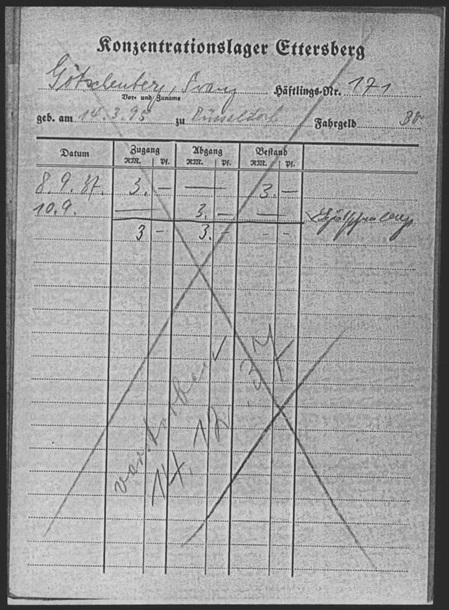 Konzentrationslager Ettersberg
Götschenberg, Franz Häftlings-Nr. 171
Vor- und Zuname
geb. am 14.3.95 zu Düsseldorf Fahrgeld
Datum Zugang Abgang Bestand
RM. Pf. RM. Pf. RM. Pf.
8.9.37. 3. — — 3. —
10.9. — 3. — —
3 — 3. — - -
14. 12. 37